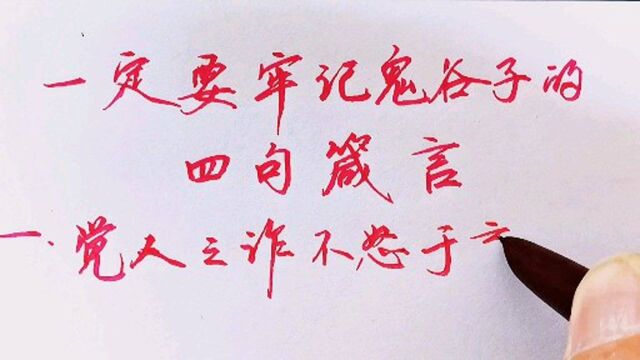 一定要牢记鬼谷子的
四句箴言
一.觉人之诈不怒于